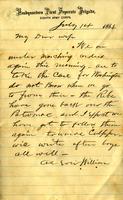 Headquarters First Separate Brigade,
EIGHTH ARMY CORPS.
July 14 1864
My Dear wife
We are
under marching orders
again this morning
to
take the Cars for Washington
do not know where we go
to from there the Rebs
have gone back over the
Potomac and I expect we
have got to follow them
again
will write after
all well
William